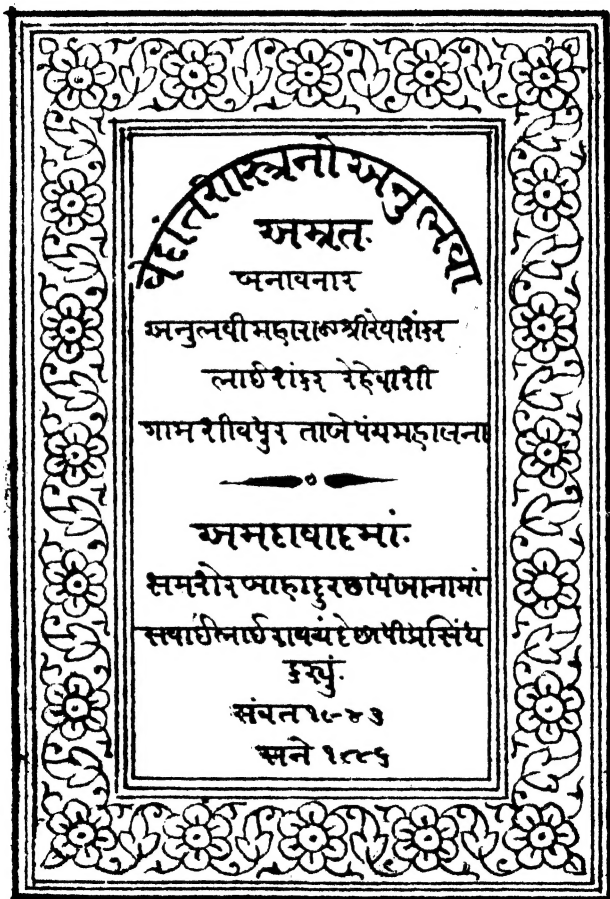 વેદાંતશાસ્ત્રનો અનુભવા
અમ્રત.
બનાવનાર
અનુભવી મહારાજ શ્રી રેવાશંકર
ભાઈશંકર રેહેવાશી
ગામ શીવપુર તાબે પંચમહાલના
અમદાવાદમાં.
સમશેર બાહાદુર છાપખાનામાં
સવાઈભાઈ રાયચંદે છાપી પ્રસિધ
કર્યું.
સંવત ૧૯૪૩
સને ૧૮૮૬